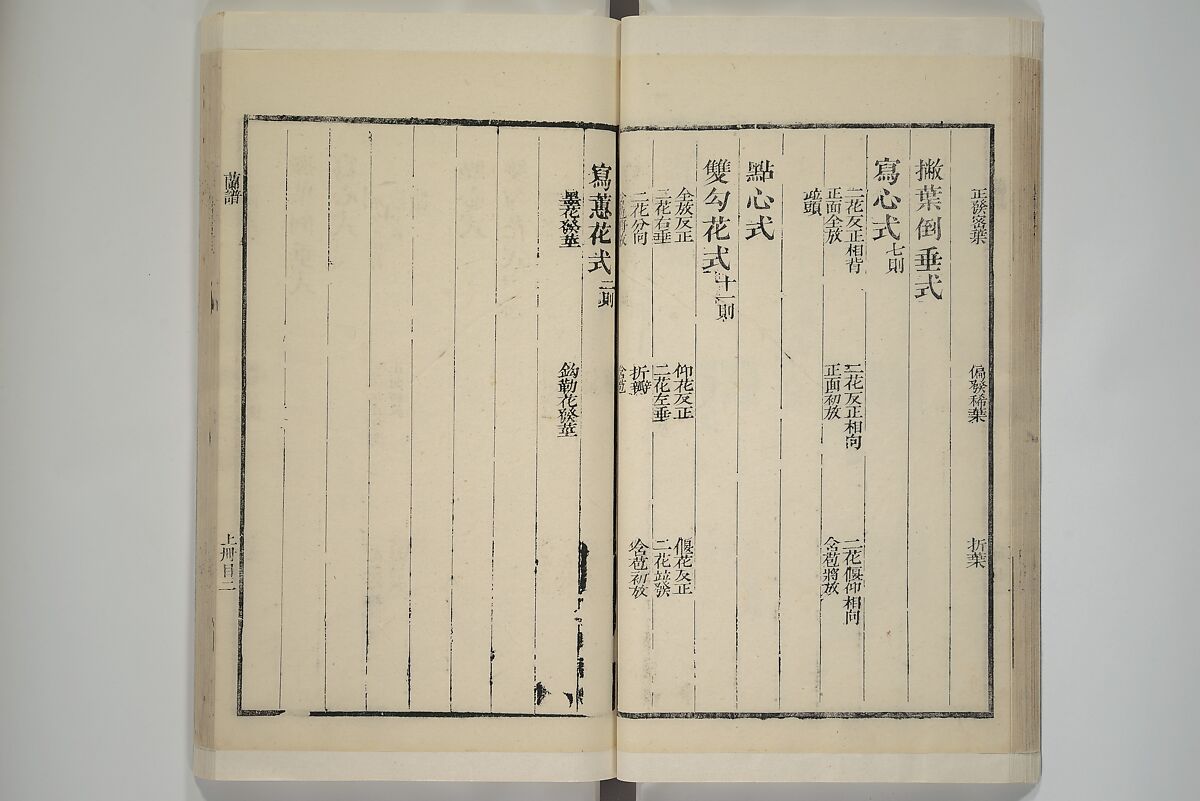 正發密葉　偏發稀葉　折葉
撇葉倒垂式
寫心式七則
二花反正相背　二花反正相向　二花偃仰相向
正面全放　正面初放　含苞將放
竝頭
點心式
雙勾花式十一則
全放反正　仰花反正　偃花反正
二花右垂　二花左垂　二花竝發
二花分向　折瓣　含苞初放
含苞將放　含苞
寫蕙花式二則
墨花發莖　鈎勒花發莖
蘭譜　上冊目二